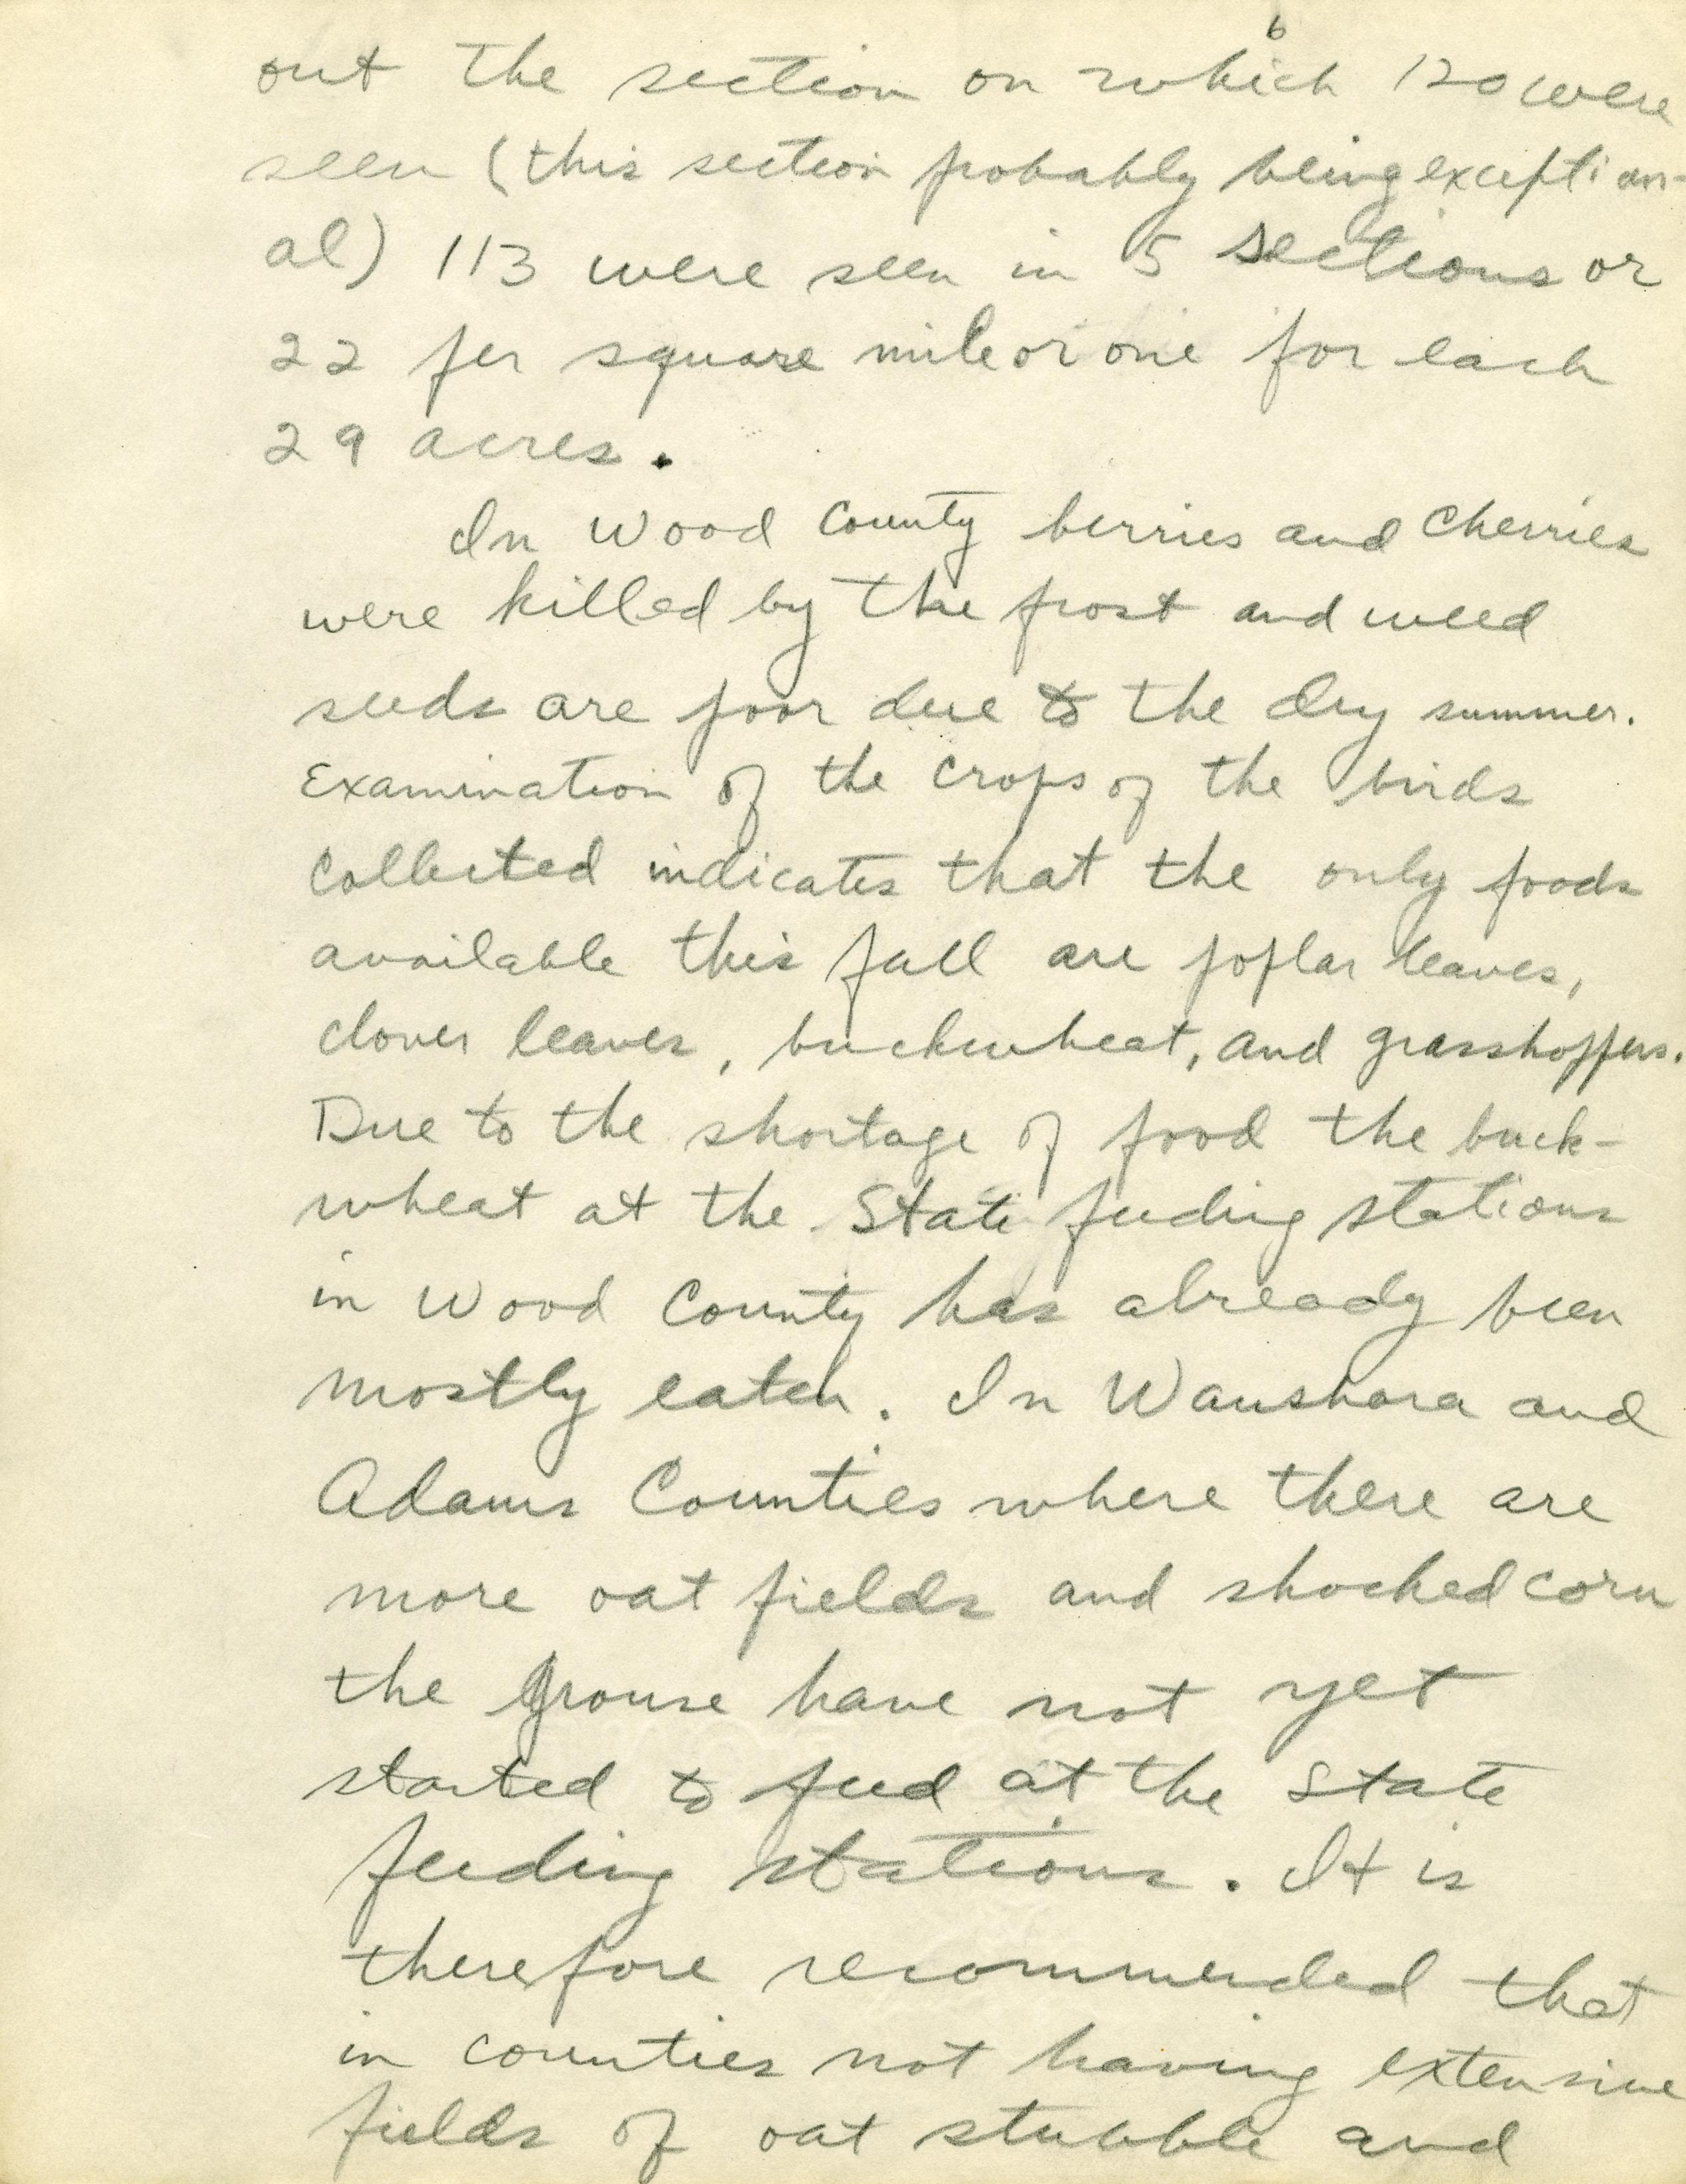 6
out the section on which 120 were
seen (this section probably being exception-
al) 113 were seen in 5 sections or
22 per square mile or one for each
29 acres.
In Wood County berries and cherries
were killed by the frost and weed
seeds are poor due to the dry summer.
Examination of the crops of the birds
collected indicates that the only foods
available this fall are poplar leaves,
clover leaves, buckwheat, and grasshoppers.
Due to the shortage of food the buck-
wheat at the State feeding stations
in Wood County has already been
mostly eaten. In Waushara and
Adams Counties where there are
more oat fields and shocked corn
the Grouse have not yet
started to feed at the State
feeding stations. It is
therefore recommended that
in counties not having extensive
fields of oat stubble and